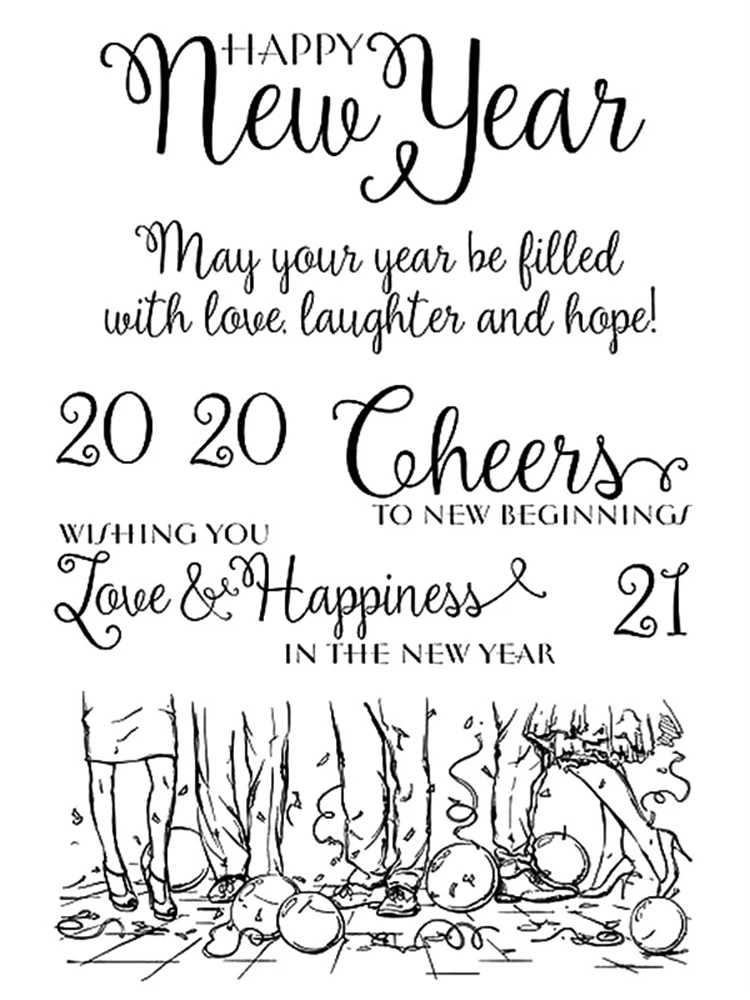 HAPPY
New Year
May your year be filled
with love, laughter and hope!
20 20
Cheers
TO NEW BEGINNINGS
WISHING YOU
Love & Happiness
21
IN THE NEW YEAR